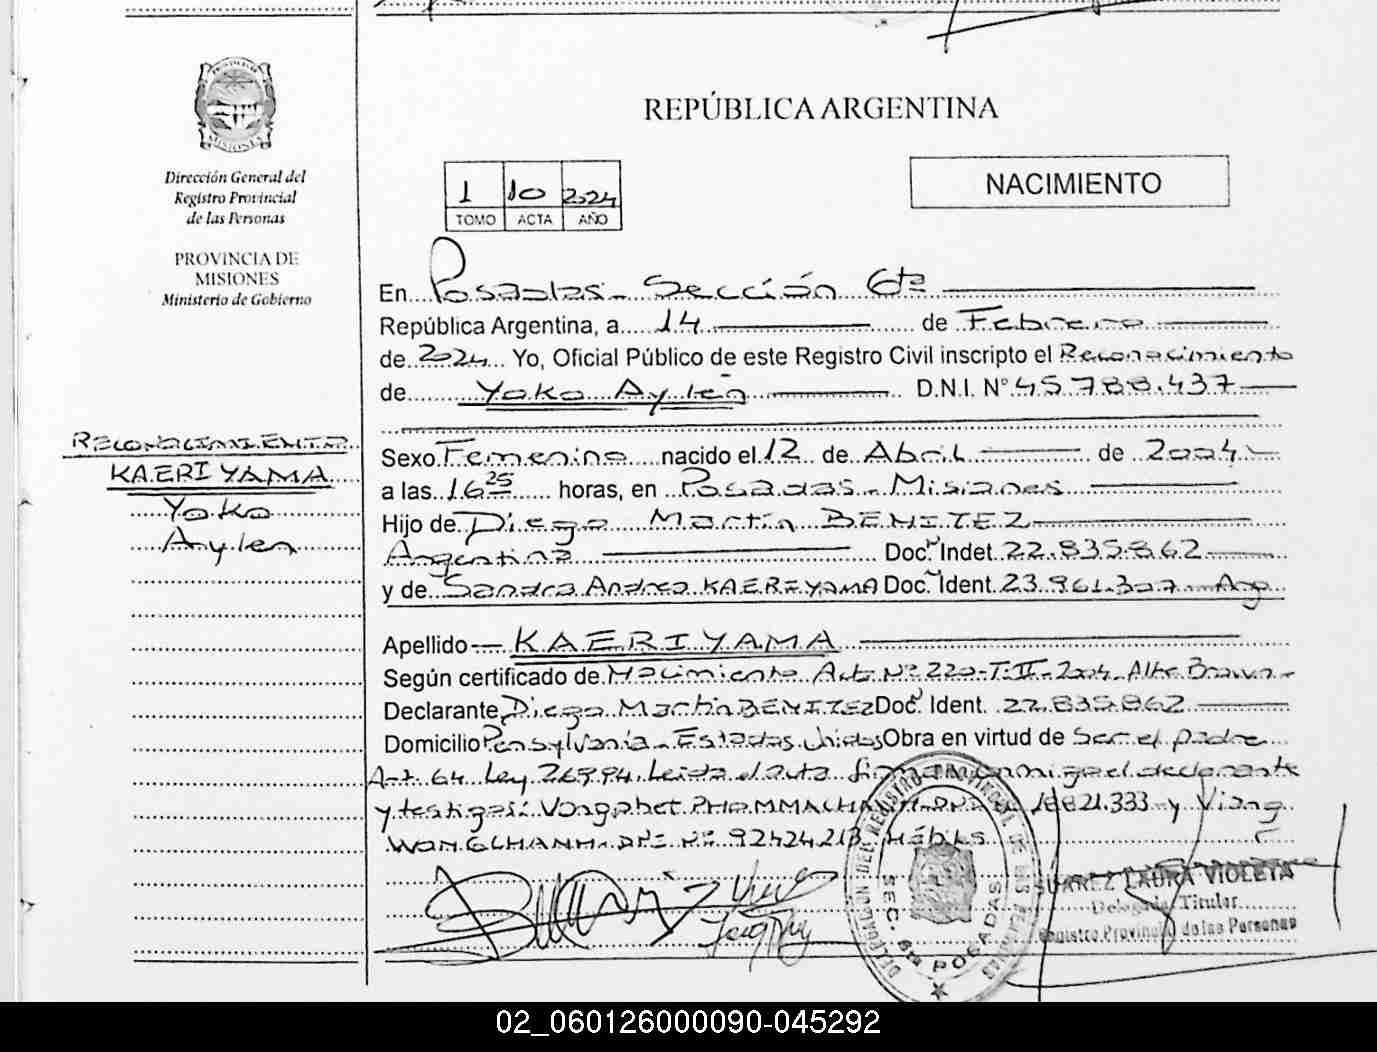 REPÚBLICA ARGENTINA
MISIONES
Dirección General del
Registro Provincial
de las Personas
PROVINCIA DE
MISIONES
Ministerio de Gobierno
1 10 2024
TOMO ACTA AÑO
NACIMIENTO
En Posadas - Sección 6ta
República Argentina, a 14 de Febrero
de 2024 Yo, Oficial Público de este Registro Civil inscripto el Reconocimiento
de Yoko Aylen D.N.I. N° 45.788.437
RECONOCIMIENTO
KAERIYAMA
Yoko
Aylen
Sexo Femenino nacido el 12 de Abril de 2004
a las 16 25 horas, en Posadas - Misiones
Hijo de Diego Martín BENITEZ
Argentina Doc. Indet. 22.835.862
y de Sandra Andrea KAERIYAMA Doc. Ident. 23.961.307 - Arg
Apellido KAERIYAMA
Según certificado de Nacimiento Acta N° 220-T-II-2004 Alte Brown
Declarante Diego Martin BENITEZ Doc. Ident. 22.835.862
Domicilio Pensylvania - Estados Unidos Obra en virtud de Ser el padre
Art. 64 Ley 26994. Leida el acta firma conmigo el declarante
y testigos: PHOMMACHANH DNI N° 18821.333 y Viang
WONGCHANH DNI N° 92424213 Hábiles
DELEGACION DEL REGISTRO PROVINCIAL DE LAS PERSONAS
SEC. 6ta POSADAS
SUAREZ LAURA VIOLETA
Delegada Titular
Registro Provincial de las Personas
02_060126000090-045292